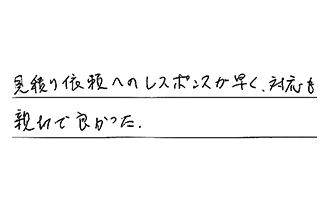 見積り依頼へのレスポンスが早く、対応も
親切で良かった.